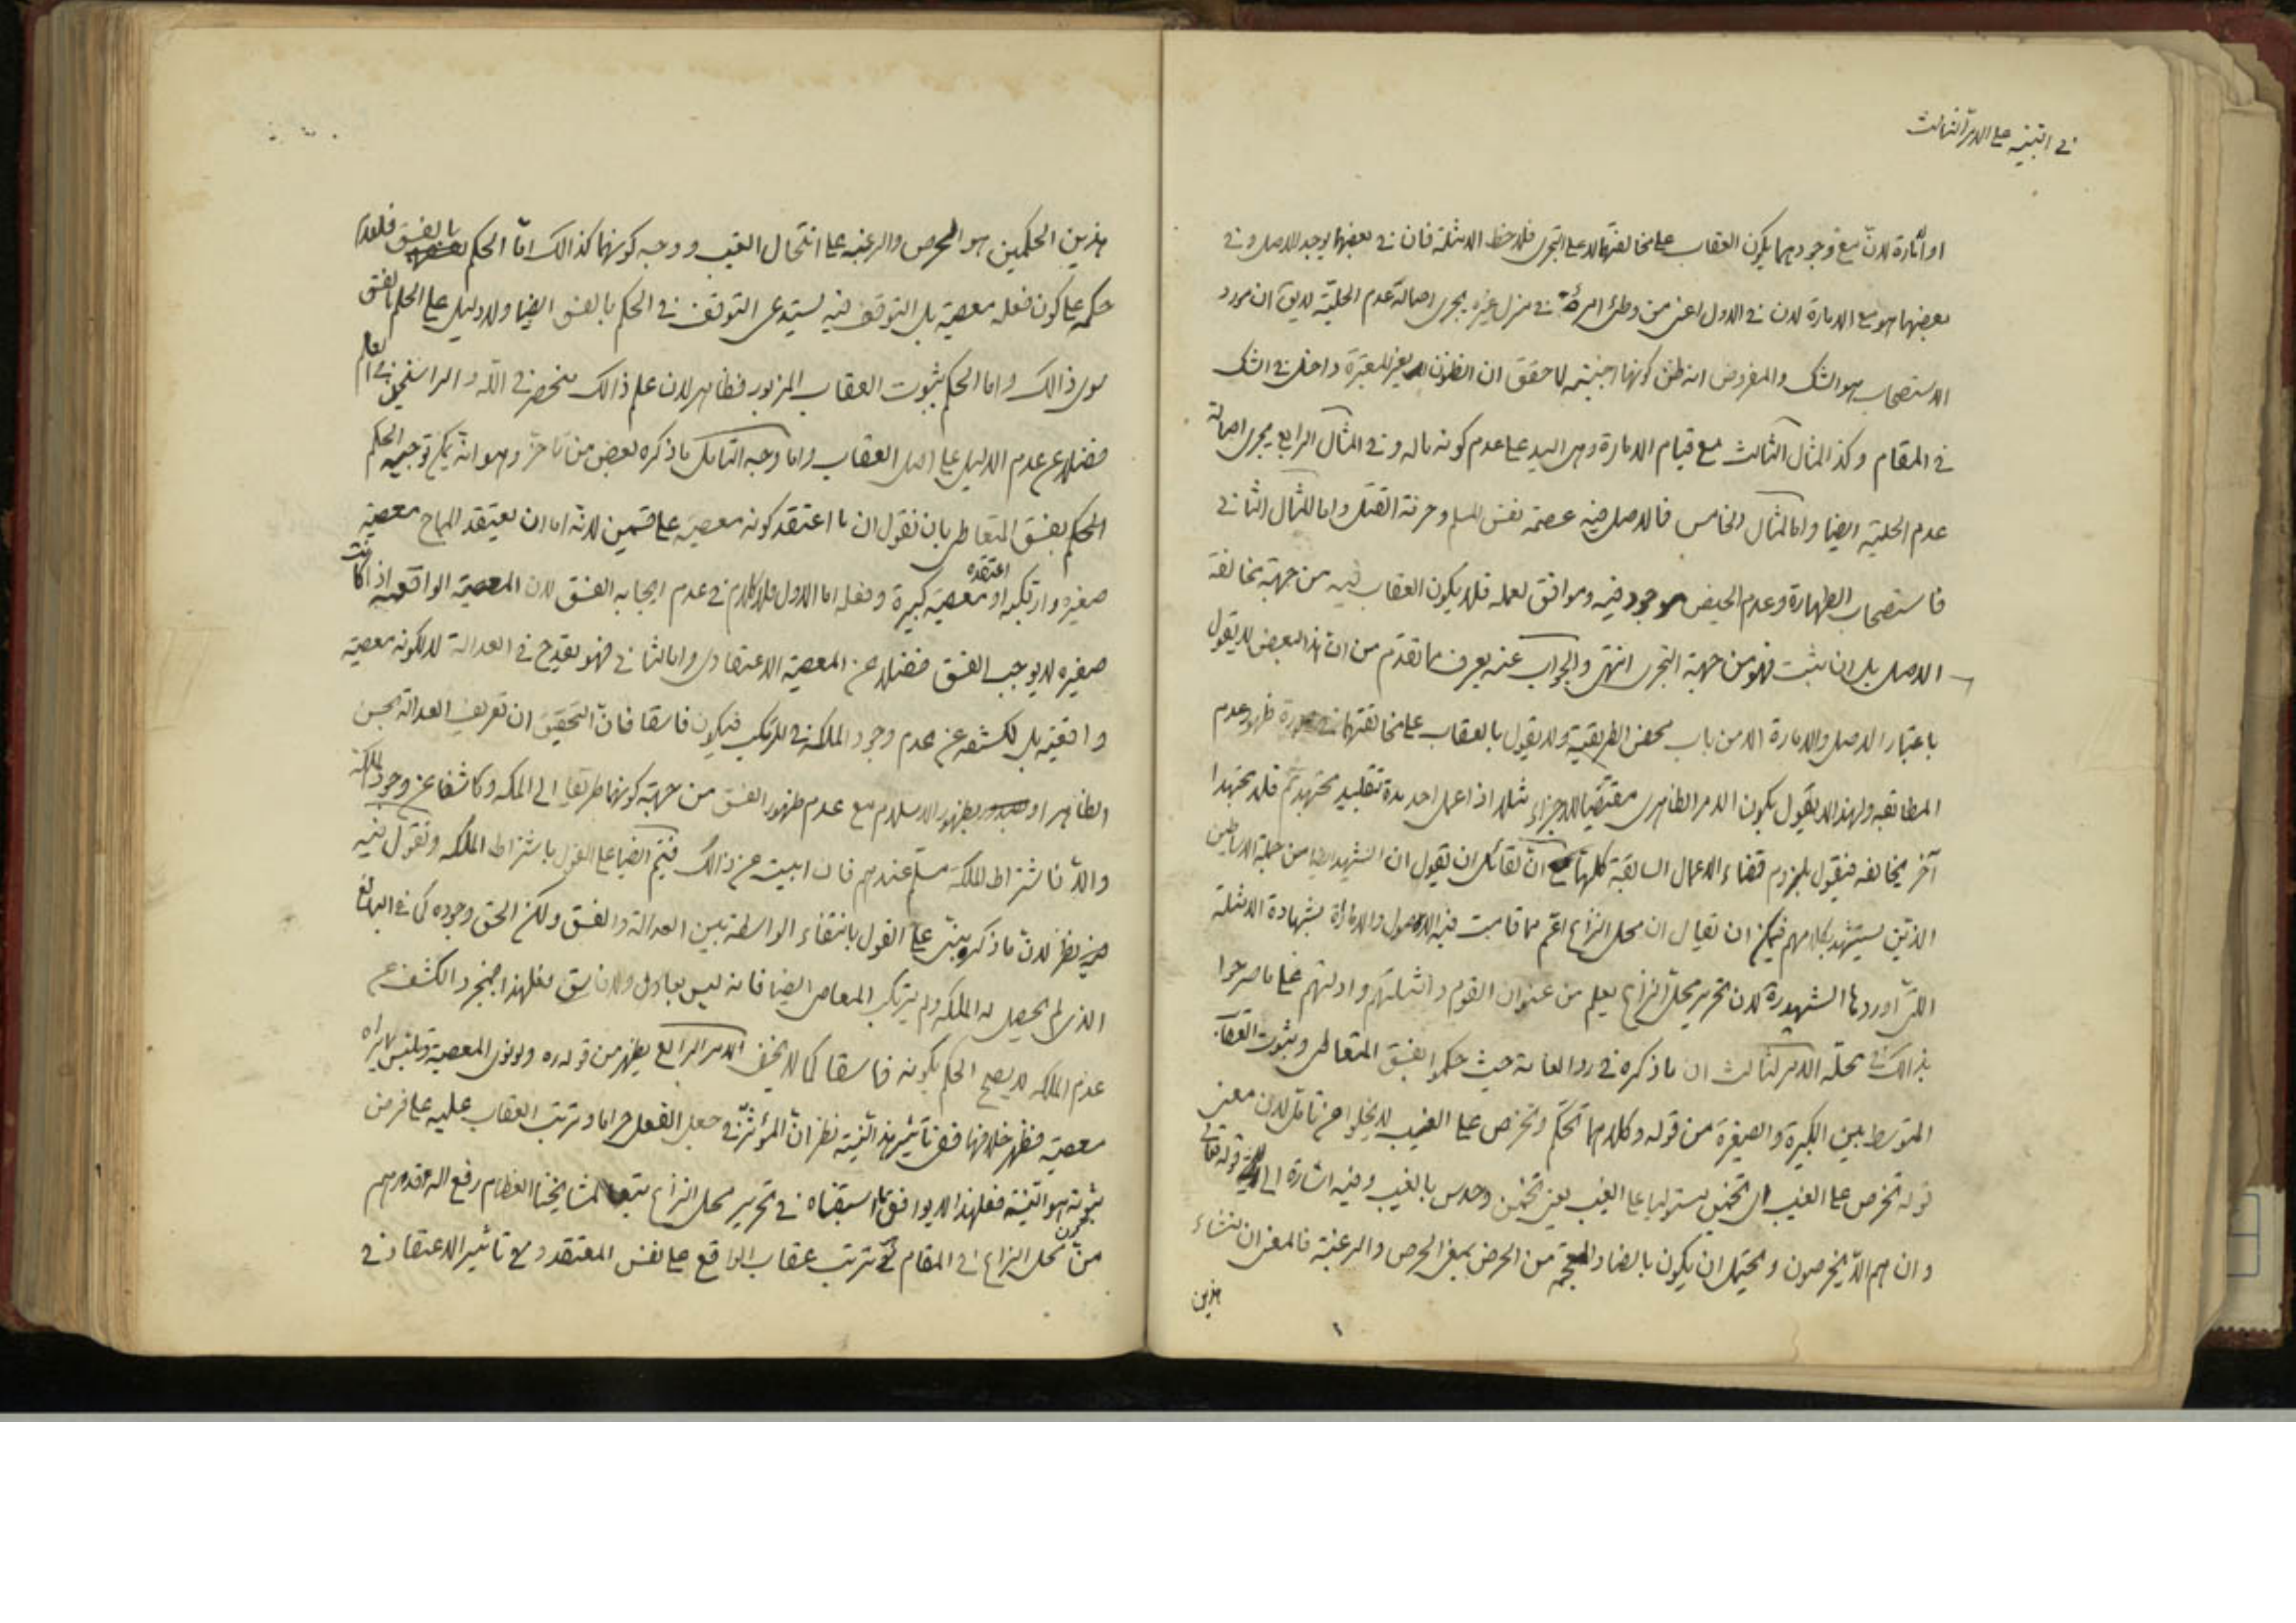 في التنبيه على الامر الثالث
او امارة لان مع وجودهما يكون العقاب على مخالفتهما لا على التجري فلاحظ الامثلة فان في بعضها يوجد الاصل وفي
بعضها هو مع الامارة لان في الاول اعني من وطئ امرأة في منزل غيره يجري اصالة عدم الحلية لا يق ان مورد
الاستصحاب هو الشك والمفروض انه ظن كونها اجنبية لا حقق ان الظنون الغير المعتبرة داخل في الشك
في المقام وكذا المثال الثالث مع قيام الامارة وهي اليد على عدم كونه ماله وفي المثال الرابع يجري اصالة
عدم الحلية ايضا واما المثال الخامس فالاصل فيه عصمة نفس المسلم وحرمة القتل واما المثال الثاني
فاستصحاب الطهارة وعدم الحيض موجود فيه وموافق لعمله فلا يكون العقاب فيه من جهة مخالفة
الاصل بل ان ثبت فهو من جهة التجري انتهى والجواب عنه يعرف مما تقدم من ان هذا البعض لا يقول
باعتبار الاصل والامارة الا من باب محض الطريقية ولا يقول بالعقاب على مخالفتهما في صورة ظهور عدم
المطابقة ولهذا لا يقول بكون الامر الظاهري مقتضيا للاجزاء مثلا اذا عمل احد مدة بتقليد مجتهد ثم قلد مجتهدا
آخر يخالفه فيقول بلزوم قضاء الاعمال السابقة كلها مع ان لقائل ان يقول ان الشهيد ايضا من جملة الاساطين
الذين يستشهد بكلامهم فيمكن ان يقال ان محل النزاع اعم مما قامت فيه الاصول والامارة بشهادة الامثلة
التي اوردها الشهيد ره لان تحرير محل النزاع يعلم من عنوان القوم وامثلتهم وادلتهم على ما صرحوا
بذلك في محله الامر الثالث ان ما ذكره في رد العامة حيث حكموا بفسق المتعاطي وبثبوت العقاب
المتوسط بين الكبيرة والصغيرة من قوله وكلاهما تحكم وتخرص على الغيب لا يخلوا عن تامل لان معنى
قوله تخرص على الغيب اي تخمين يستوليا على الغيب يعني تخمين وحدس بالغيب وفيه اشارة الى قوله تعالى
وان هم الا يخرصون ويحتمل ان يكون بالضاد المعجمة من الحرض بمعنى الحرص والرغبة فالمعنى ان منشاء
هذين
هذين الحكمين هو الحرص والرغبة على انتحال الغيب ووجه كونهما كذالك اما الحكم بالفسق فلعدم
حكمه على كون فعله معصية بل التوقف فيه يستدعي التوقف في الحكم بالفسق ايضا ولا دليل على الحكم بالفسق
سوى ذالك واما الحكم بثبوت العقاب المزبور فظاهر لان علم ذالك منحصر في الله والراسخين في العلم
فضلا عن عدم الدليل على اصل العقاب واما وجه التامل ما ذكره بعض من تاخر وهو انه يمكن توجيه الحكم
الحكم بفسق المتعاطي بان نقول ان ما اعتقد كونه معصية على قسمين لانه اما ان يعتقد المباح معصية
صغيرة وارتكبه او اعتقده معصية كبيرة وفعله اما الاول فلا كلام في عدم ايجابه الفسق لان المعصية الواقعية اذا كانت
صغيرة لا يوجب الفسق فضلا عن المعصية الاعتقادي واما الثاني فهو يقدح في العدالة لا لكونه معصية
واقعية بل لكشفه عن عدم وجود الملكة في المرتكب فيكون فاسقا فان التحقيق ان تعريف العدالة بحسن
الظاهر او بظهور الاسلام مع عدم ظهور الفسق من جهة كونها طريقا الى الملكة وكاشفا عن وجود الملكة
والا فاشتراط الملكة مسلم عندهم فان ابيت عن ذالك فيتم ايضا على القول باشتراط الملكة ونقول فيه
نظر لان ما ذكره مبني على القول بانتفاء الواسطة بين العدالة والفسق ولكن الحق وجوده كما في البالغ
الذي لم يحصل له الملكة ولم يرتكب المعاصي ايضا فانه ليس بعادل ولا فاسق فعلى هذا فبمجرد الكشف عن
عدم الملكة لا يصح الحكم بكونه فاسقا كما لا يخفى الامر الرابع يظهر من قوله ره ولو نوى المعصية وتلبس بما يراه
معصية فظهر خلافها ففي تاثير هذه النية نظر ان المؤثر في جعل الفعل حراما وترتب العقاب عليه على فرض
ثبوته هو النية فعلى هذا لا يوافق ما اسبقناه في تحرير محل النزاع تبعا لمشايخنا العظام رفع الله اقدارهم
من كون محل النزاع في المقام في ترتب عقاب الواقع على نفس المعتقد وفي تاثير الاعتقاد في